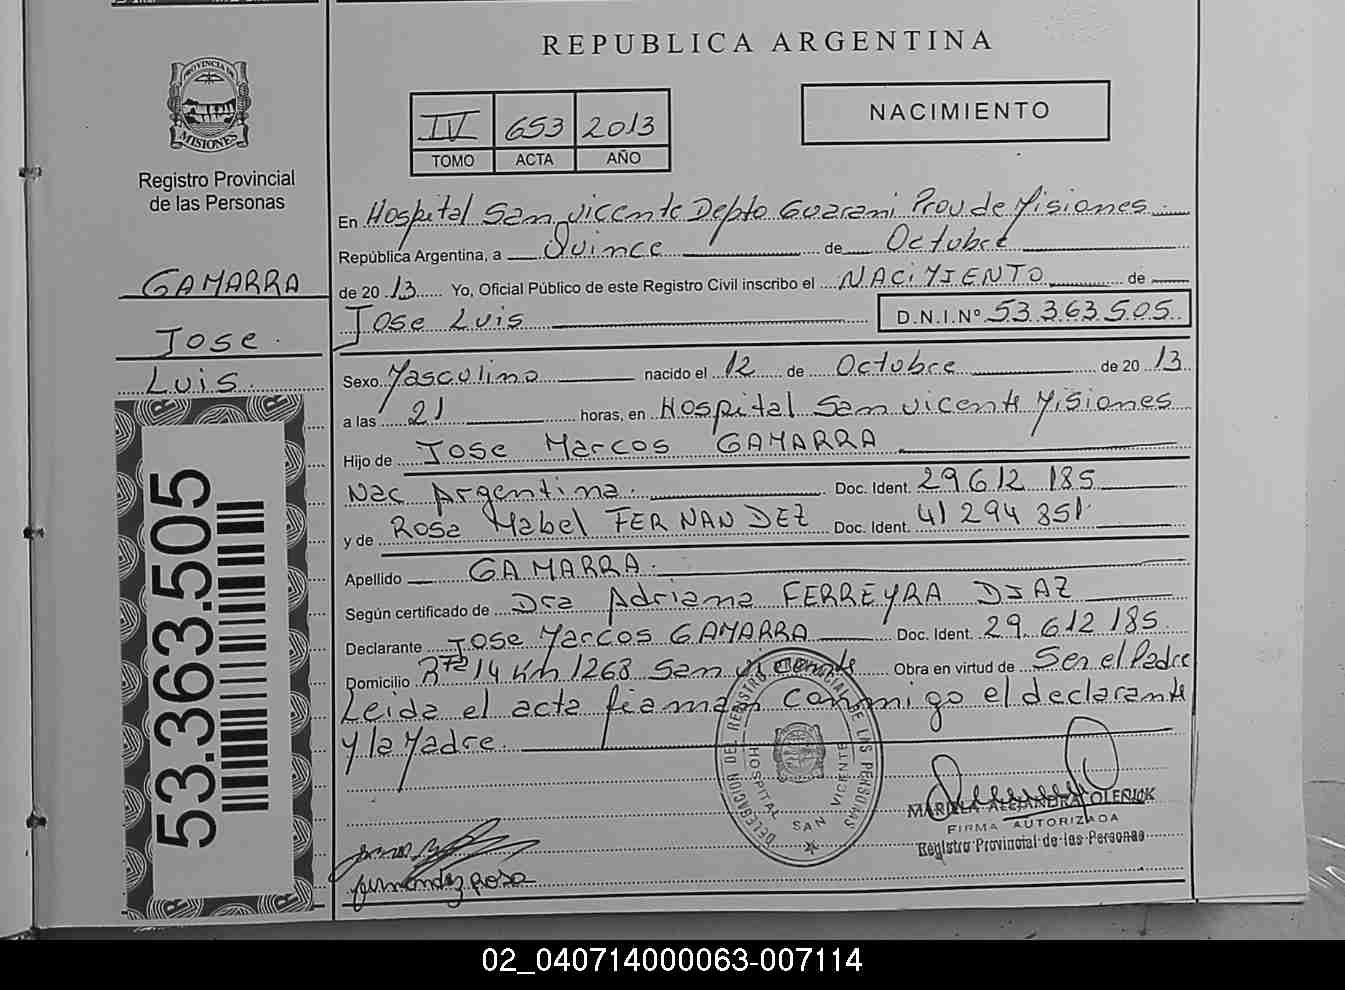 REPUBLICA ARGENTINA
PROVINCIA DE
MISIONES
Registro Provincial
de las Personas
GAMARRA
Jose
Luis.
53.363.505
IV 653 2013
TOMO ACTA AÑO
NACIMIENTO
En Hospital San Vicente Depto Guarani Prov de Misiones
República Argentina, a Quince de Octubre
de 2013 Yo, Oficial Público de este Registro Civil inscribo el NACIMIENTO de
Jose Luis D.N.I.Nº 53 363 505
Sexo Masculino nacido el 12 de Octubre de 2013
a las 21 horas, en Hospital San Vicente Misiones
Hijo de Jose Marcos GAMARRA
Nac Argentina. Doc. Ident. 29 612 185
y de Rosa Mabel FERNANDEZ Doc. Ident. 41 294 351
Apellido GAMARRA.
Según certificado de Dra Adriana FERREYRA DIAZ
Declarante Jose Marcos GAMARRA Doc. Ident. 29.612 185
Domicilio Rta 14 Km 1268 San Vicente Obra en virtud de Ser el Padre
Leida el acta firman conmigo el declarante
y la Madre
DELEGACION DEL REGISTRO PROVINCIAL DE LAS PERSONAS
HOSPITAL SAN VICENTE
ALEJANDRA OLERIUK
FIRMA AUTORIZADA
Registro Provincial de las Personas
fernandez rosa
02_040714000063-007114